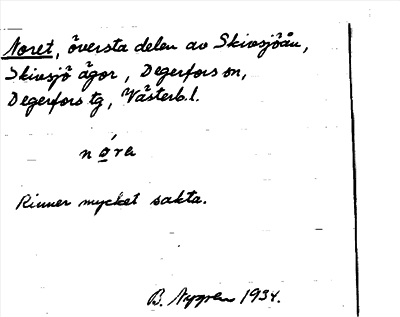 Noret, översta delen av Skivsjöån,
Skivsjö ägor, Degerfors sn,
Degerfors tg, Västerb.l.
nó̲ra
Rinner mycket sakta.
B. Nygren 1934.